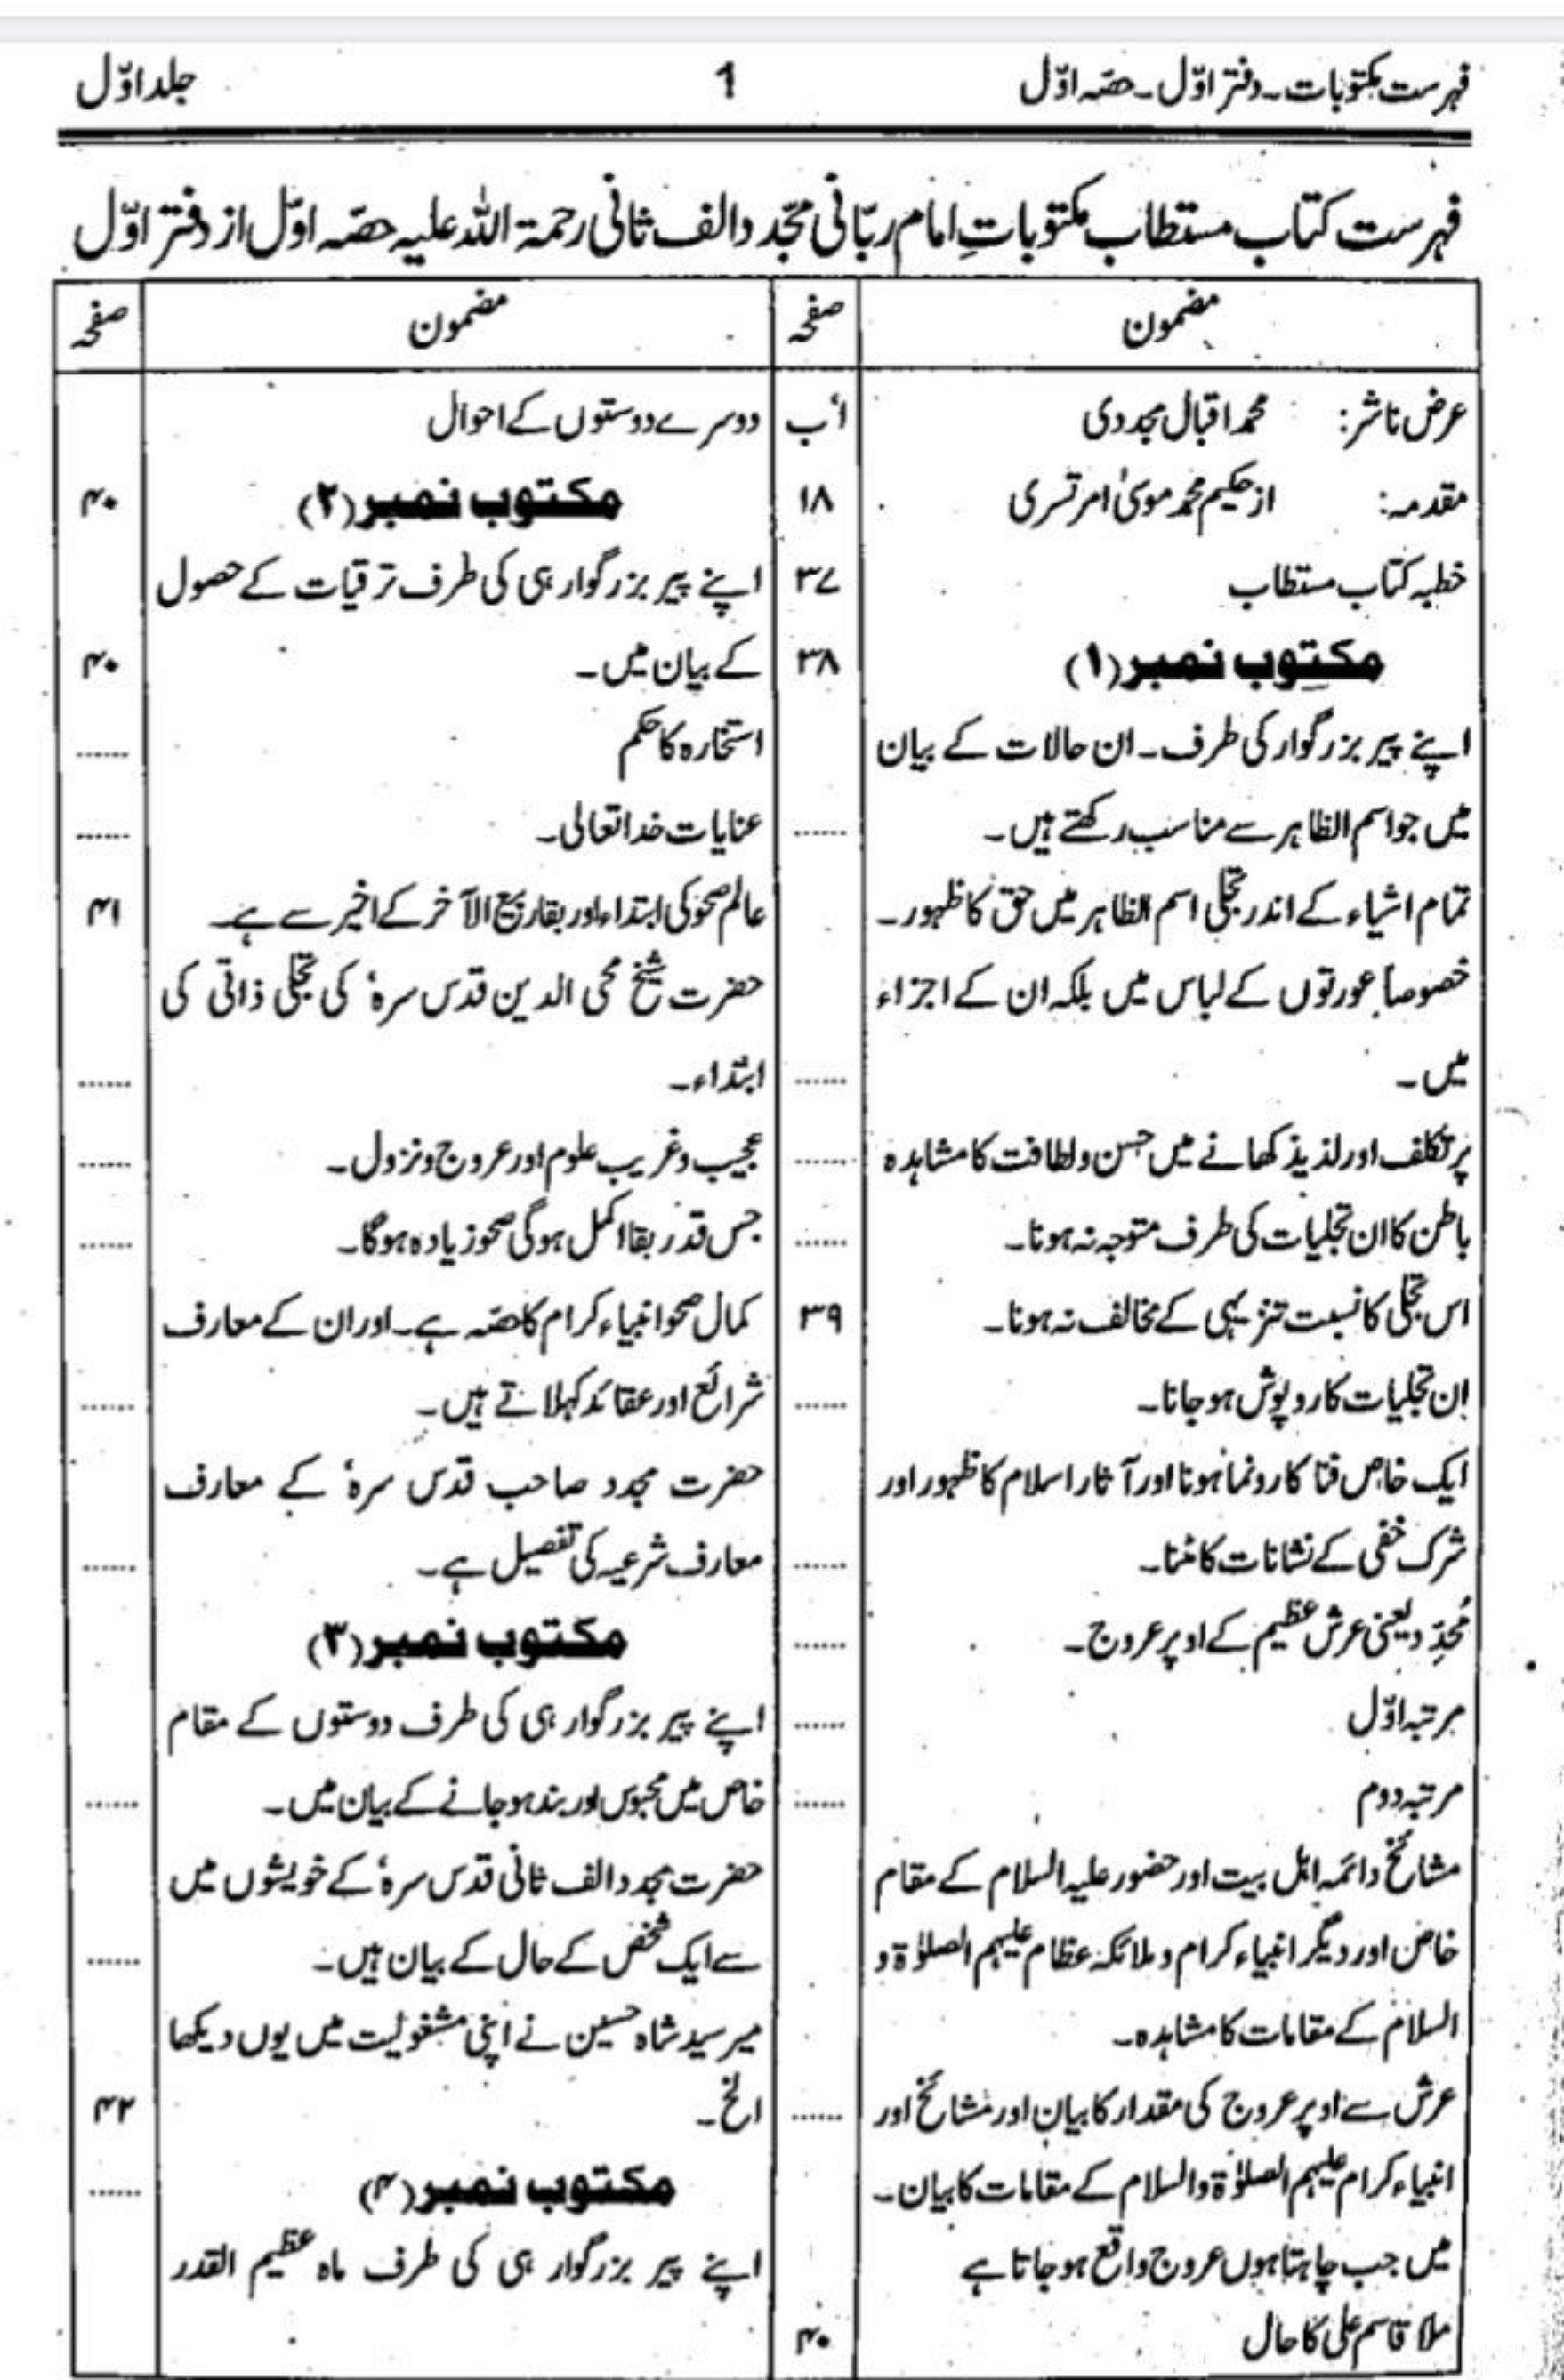 فہرست مکتوبات۔ دفتر اوّل۔ حصّہ اوّل 1 جلد اوّل
فہرست کتاب مستطاب مکتوباتِ امام ربّانی مجّدد الف ثانی رحمۃ اللہ علیہ حصّہ اوّل از دفتر اوّل
مضمون صفحہ
عرض ناشر: محمد اقبال مجددی اُب
مقدمہ: از حکیم محمد موسیٰ امرتسری ۱۸
خطبہ کتاب مستطاب ۳۷
مکتوب نمبر (۱) ۳۸
اپنے پیر بزرگوار کی طرف۔ ان حالات کے بیان
میں جو اسم الظاہر سے مناسب رکھتے ہیں۔ ......
تمام اشیاء کے اندر تجلی اسم الظاہر میں حق کا ظہور۔
خصوصاً عورتوں کے لباس میں بلکہ ان کے اجزاء
میں۔ ......
پر تکلف اور لذیذ کھانے میں حسن و لطافت کا مشاہدہ ......
باطن کا ان تجلیات کی طرف متوجہ نہ ہونا۔ ......
اس تجلی کا نسبت تنزیہی کے مخالف نہ ہونا۔ ۳۹
اِن تجلیات کا روپوش ہو جانا۔ ......
ایک خاص فنا کا رونما ہونا اور آثار اسلام کا ظہور اور
شرک خفی کے نشانات کا مٹنا۔ ......
مُحدِّد یعنی عرش عظیم کے اوپر عروج۔ ......
مرتبہ اوّل ......
مرتبہ دوم ......
مشائخ و ائمہ اہل بیت اور حضور علیہ السلام کے مقام
خاص اور دیگر انبیاء کرام و ملائکہ عظام علیہم الصلوٰۃ و
السلام کے مقامات کا مشاہدہ۔
عرش سے اوپر عروج کی مقدار کا بیان اور مشائخ اور ......
انبیاء کرام علیہم الصلوٰۃ والسلام کے مقامات کا بیان۔
میں جب چاہتا ہوں عروج واقع ہو جاتا ہے
ملا قاسم علی کا حال ۴۰
مضمون صفحہ
دوسرے دوستوں کے احوال
مکتوب نمبر (۲) ۴۰
اپنے پیر بزرگوار ہی کی طرف ترقیات کے حصول
کے بیان میں۔ ۴۰
استخارہ کا حکم ......
عنایات خدا تعالی۔ ......
عالم صحو کی ابتداء اور بقا ربیع الآخر کے اخیر سے ہے۔ ۴۱
حضرت شیخ محی الدین قدس سرہٗ کی تجلی ذاتی کی
ابتداء۔ ......
عجیب و غریب علوم اور عروج و نزول۔ ......
جس قدر بقا اکمل ہوگی صحو زیادہ ہوگا۔ ......
کمال صحو انبیاء کرام کا حصّہ ہے۔ اور ان کے معارف
شرائع اور عقائد کہلاتے ہیں۔ ......
حضرت مجدد صاحب قدس سرہٗ کے معارف
معارف شرعیہ کی تفصیل ہے۔ ......
مکتوب نمبر (۳)
اپنے پیر بزرگوار ہی کی طرف دوستوں کے مقام
خاص میں محبوس اور بند ہو جانے کے بیان میں۔ ......
حضرت مجدد الف ثانی قدس سرہٗ کے خویشوں میں
سے ایک شخص کے حال کے بیان ہیں۔ ......
میر سید شاہ حسین نے اپنی مشغولیت میں یوں دیکھا
الخ۔ ۴۲
مکتوب نمبر (۴) ......
اپنے پیر بزرگوار ہی کی طرف ماہ عظیم القدر